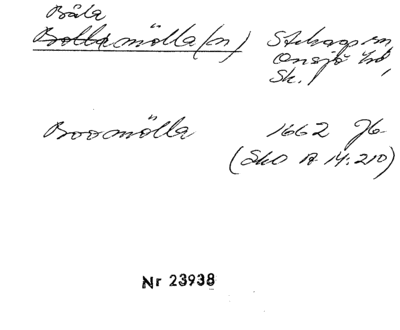 Båla
Bollamölla(n) Stehags sn
Onsjö hd,
Sk.
Boosmölla 1662 Jb
(SkO A 14:210)
Nr 23938